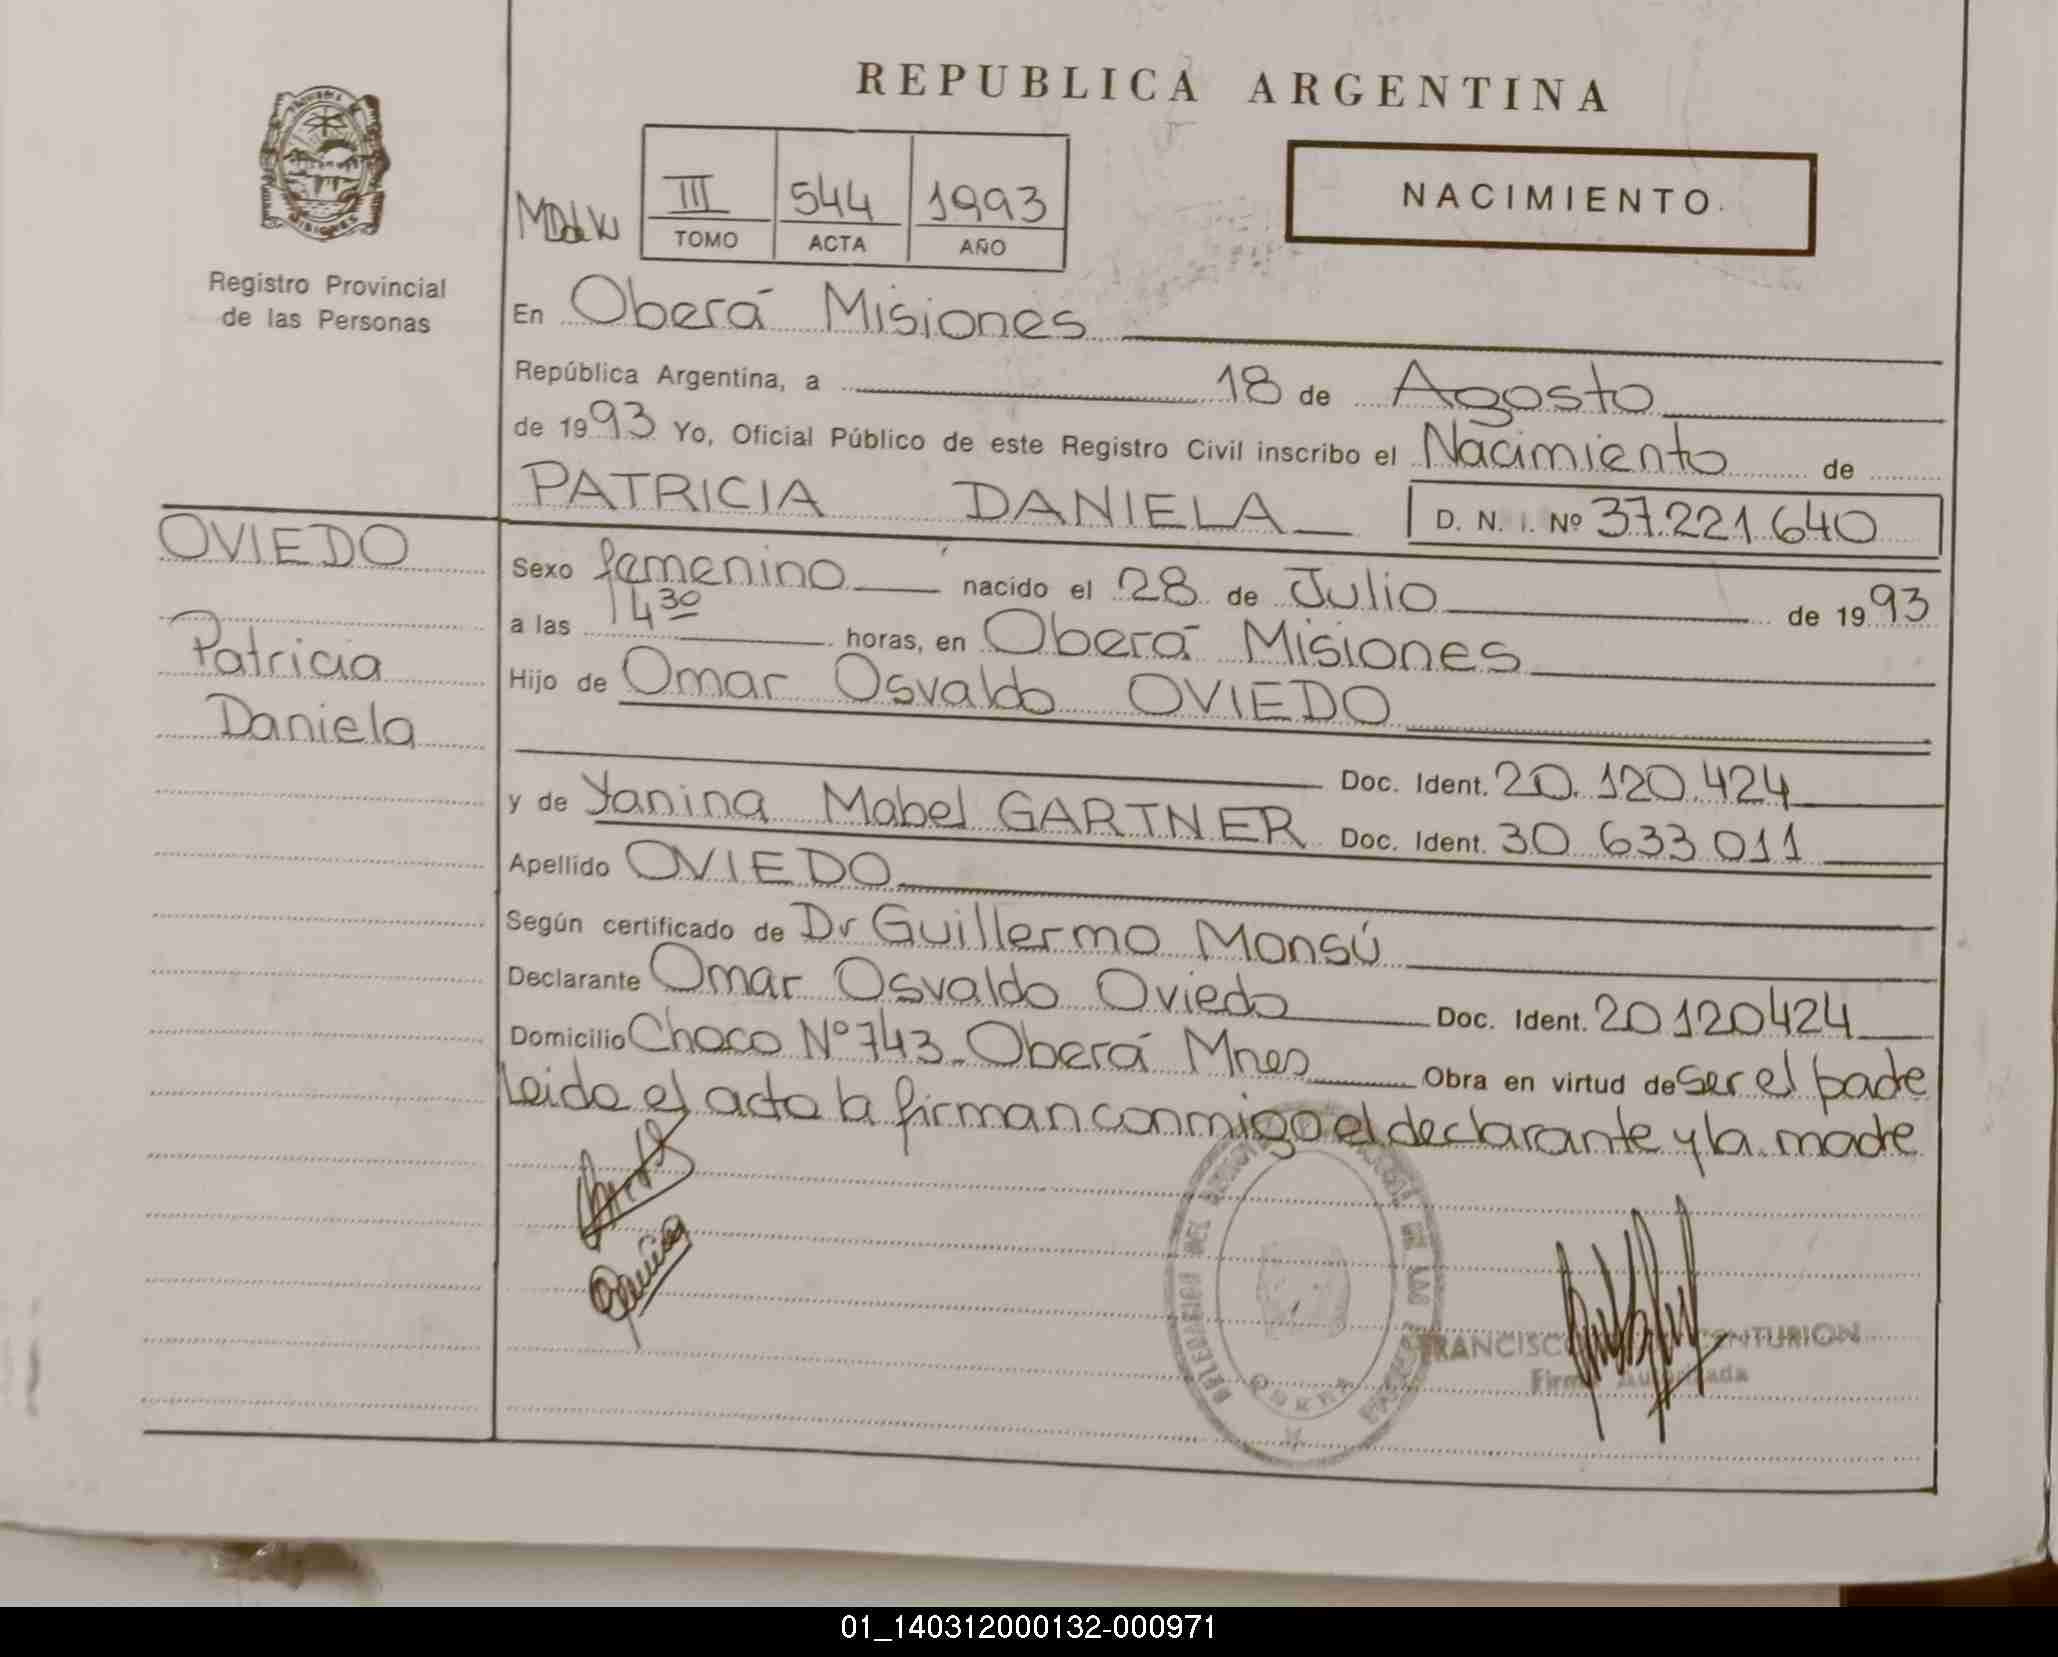 REPUBLICA ARGENTINA
NACIMIENTO.
III 544 1993
TOMO ACTA AÑO
Registro Provincial
de las Personas
En Oberá Misiones
República Argentina, a 18 de Agosto
de 1993 Yo, Oficial Público de este Registro Civil inscribo el Nacimiento de
PATRICIA DANIELA D. N. I. Nº 37.221.640
OVIEDO
Patricia
Daniela
Sexo femenino nacido el 28 de Julio de 1993
a las 14 30 horas, en Oberá Misiones
Hijo de Omar Osvaldo OVIEDO
Doc. Ident. 20.120.424
y de Yanina Mabel GARTNER Doc. Ident. 30 633 011
Apellido OVIEDO
Según certificado de Dr Guillermo Monsú
Declarante Omar Osvaldo Oviedo Doc. Ident. 20120424
Domicilio Chaco Nº 743 - Oberá Mnes Obra en virtud de ser el padre
Leida el acta la firman conmigo el declarante y la madre
FRANCISCO CENTURION
Firma Autorizada
OBERA
01_140312000132-000971